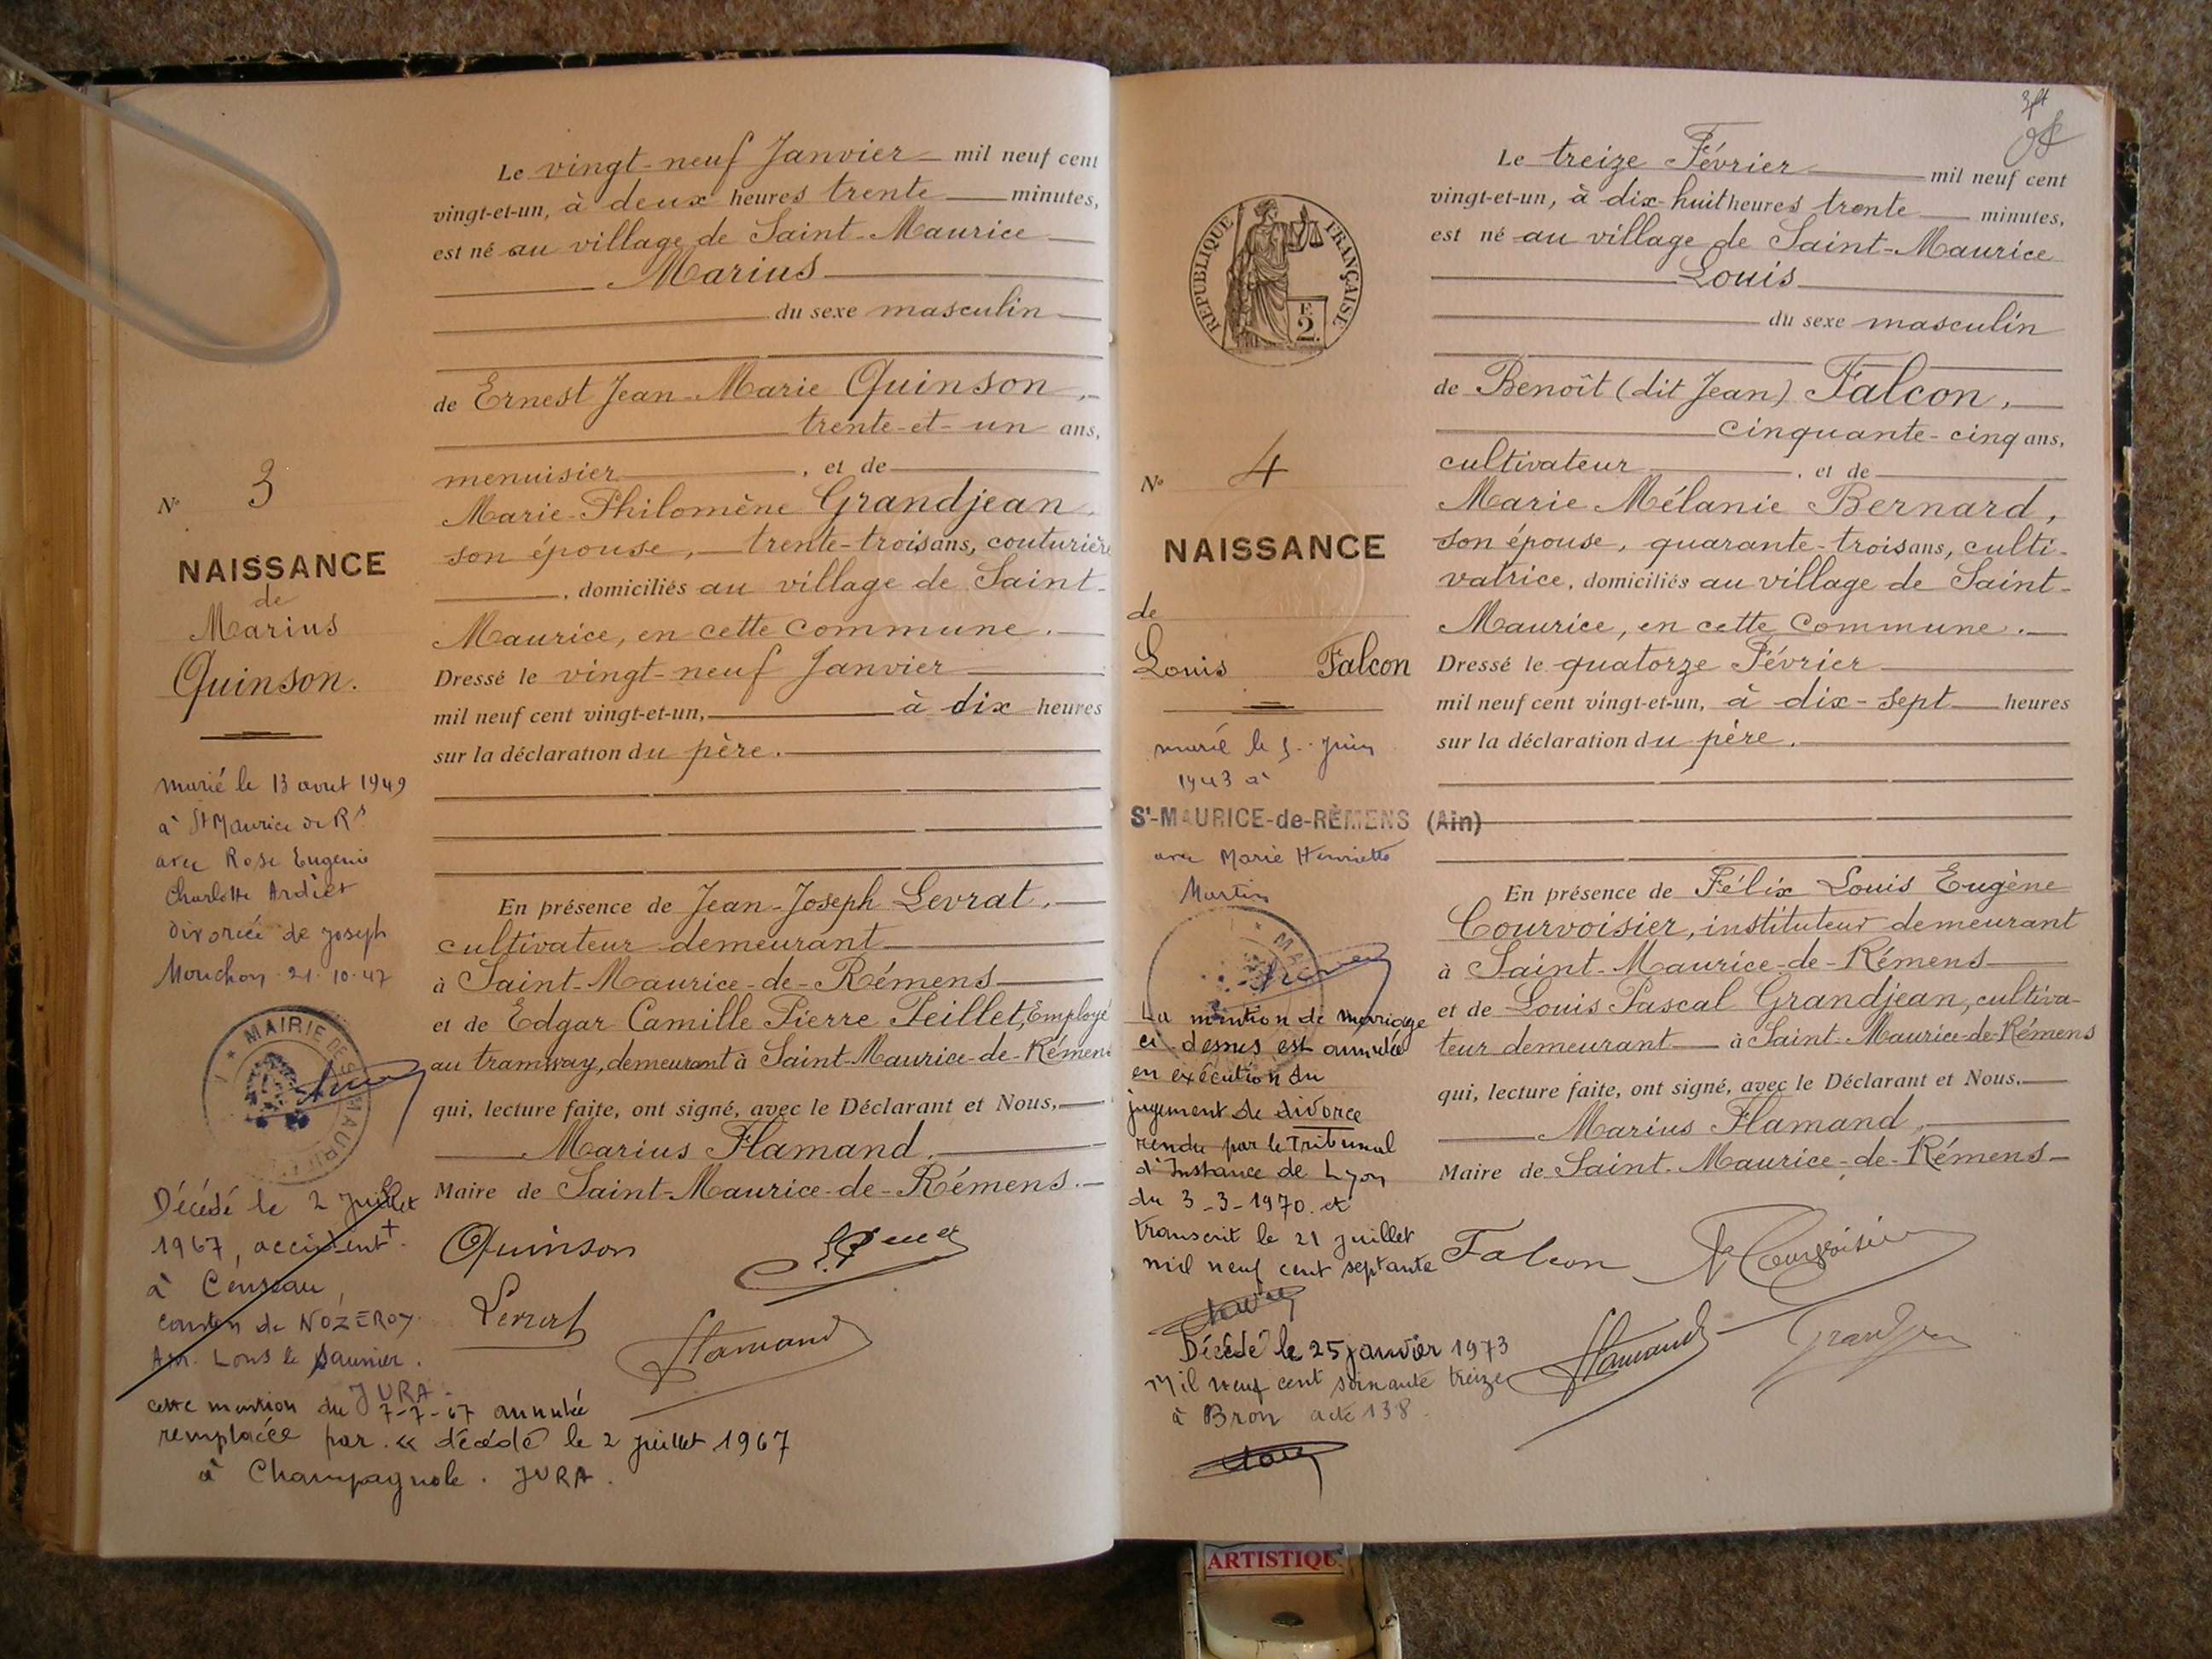 Le vingt-neuf Janvier mil neuf cent
vingt-et-un, à deux heures trente minutes,
est né au village de Saint-Maurice
Marius
du sexe masculin
de Ernest Jean-Marie Quinson,
trente-et-un ans,
menuisier, et de
Marie-Philomène Grandjean,
son épouse, trente-trois ans, couturière
, domiciliés au village de Saint-
Maurice, en cette commune.
Dressé le vingt-neuf Janvier
mil neuf cent vingt-et-un, à dix heures
sur la déclaration du père.
En présence de Jean-Joseph Levrat,
cultivateur demeurant
à Saint-Maurice-de-Rémens
et de Edgar Camille Pierre Peillet, Employé
au tramway, demeurant à Saint-Maurice-de-Rémens
qui, lecture faite, ont signé, avec le Déclarant et Nous,
Marius Flamand,
Maire de Saint-Maurice-de-Rémens.
Quinson
Levrat
Flamand
N° 3
NAISSANCE
de
Marius
Quinson.
marié le 13 aout 1949
à St Maurice de Rs
avec Rose Eugenie
Charlotte Ardiet
divorcée de Joseph
Mouchon 21.10.47
MAIRIE DE ST MAURI
Décédé le 2 Juillet
1967, accident+
à Censeau,
canton de NOZEROY
Arr. Lons le Saunier.
JURA.
cette mention du 7-7-67 annulée
remplacée par « décédé le 2 juillet 1967
à Champagnole. JURA.
RÉPUBLIQUE FRANÇAISE
F.
2.
N° 4
NAISSANCE
de
Louis Falcon
marié le 5 Juin
1943 à
St-MAURICE-de-RÉMENS (Ain)
avec Marie Henriette
Martin
MA
La mention de mariage
ci dessus est annulée
en exécution du
jugement de divorce
rendu par le Tribunal
d'Instance de Lyon
du 3-3-1970. et
transcrit le 21 juillet
mil neuf cent septante
Décédé le 25 janvier 1973
Mil neuf cent soixante treize
à Bron acte 138
Le treize Février mil neuf cent
vingt-et-un, à dix-huit heures trente minutes,
est né au village de Saint-Maurice
Louis
du sexe masculin
de Benoît (dit Jean) Falcon,
cinquante-cinq ans,
cultivateur, et de
Marie Mélanie Bernard,
son épouse, quarante-trois ans, culti-
vatrice, domiciliés au village de Saint-
Maurice, en cette commune.
Dressé le quatorze Février
mil neuf cent vingt-et-un, à dix-sept heures
sur la déclaration du père.
En présence de Félix Louis Eugène
Courvoisier, instituteur demeurant
à Saint-Maurice-de-Rémens
et de Louis Pascal Grandjean, cultiva-
teur demeurant à Saint-Maurice-de-Rémens
qui, lecture faite, ont signé, avec le Déclarant et Nous,
Marius Flamand,
Maire de Saint-Maurice-de-Rémens
Falcon
Courvoisier
Flamand
Grandjean
ARTISTIQU